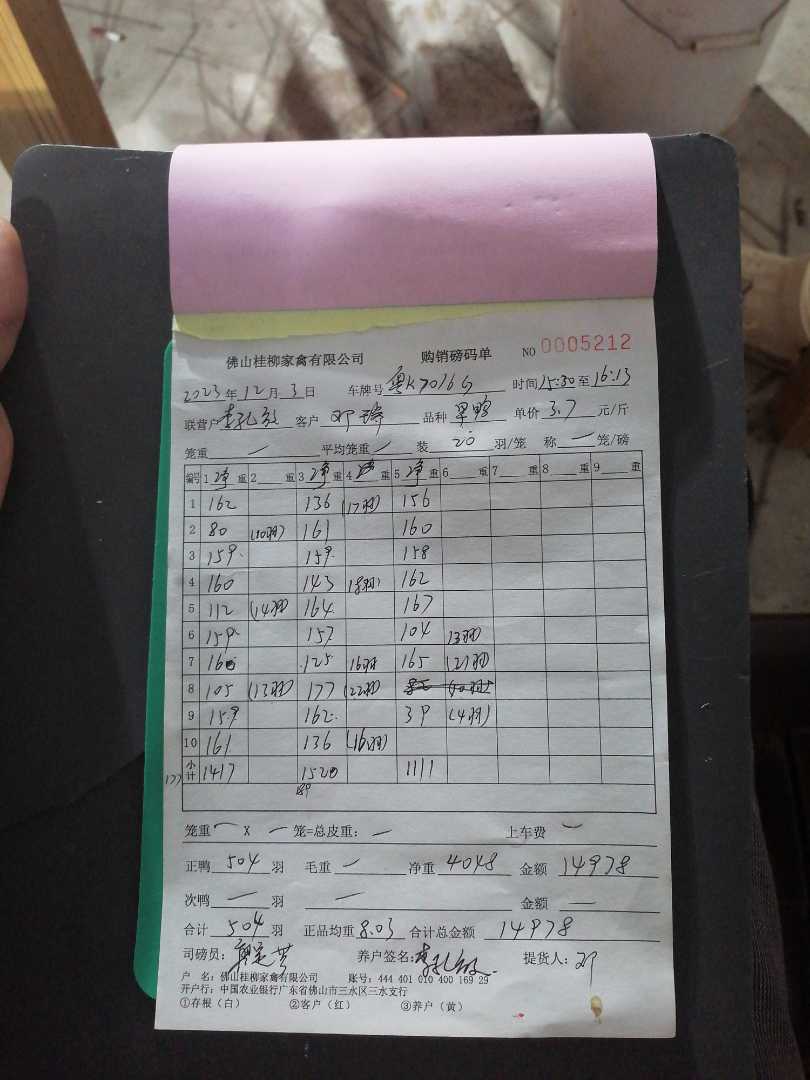 佛山桂柳家禽有限公司 购销磅码单 NO 0005212
2023年12月3日 车牌号 粤K7016G 时间15:30至16:13
联营户 客户 邓 品种 果鸭 单价 3.7 元/斤
笼重 — 平均笼重 — 装 20 羽/笼 称 — 笼/磅
编号 1 净重 2 重 3 净重 4 重 5 净重 6 重 7 重 8 重 9 重
1 162 136 (17羽) 156
2 80 (10羽) 161 160
3 159 159 158
4 160 143 18羽) 162
5 112 (14羽) 164 167
6 159 157 104 13羽)
7 160 125 16羽 165 (21羽)
8 105 (13羽) 177 (22羽)
9 159 162 39 (4羽)
10 161 136 (16羽)
177 小计 1417 1520 1111
189
笼重 — X — 笼=总皮重: — 上车费 —
正鸭 504 羽 毛重 — 净重 4048 金额 14978
次鸭 — 羽 — 金额 —
合计 504 羽 正品均重 8.03 合计总金额 14978
司磅员: 养户签名: 提货人: 邓
户 名: 佛山桂柳家禽有限公司 账号: 444 401 010 400 169 29
开户行: 中国农业银行广东省佛山市三水区三水支行
①存根(白) ②客户(红) ③养户(黄)